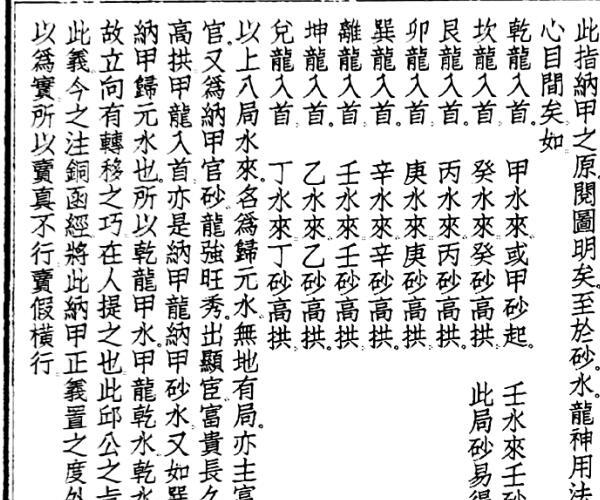 此指納甲之原閱圖明矣至於砂水龍神用法
心目間矣如
乾龍入首。 甲水來或甲砂起。 壬水來壬砂
坎龍入首。 癸水來癸砂高拱。 此局砂易得
艮龍入首。 丙水來丙砂高拱。
卯龍入首。 庚水來庚砂高拱。
巽龍入首。 辛水來辛砂高拱。
離龍入首。 壬水來壬砂高拱。
坤龍入首。 乙水來乙砂高拱。
兌龍入首。 丁水來丁砂高拱。
以上八局水來。各爲歸元水無地有局。亦主富
官。又爲納甲官砂龍強旺秀。出顯宦富貴長久
高拱甲龍入首亦是納甲龍納甲砂水又如巽
納甲歸元水也。所以乾龍甲水。甲龍乾水乾水
故立向有轉移之巧在人提之也此邱公之
此義今之注銅函經將此納甲正義置之度外
以爲寶所以賣真不行賣假橫行